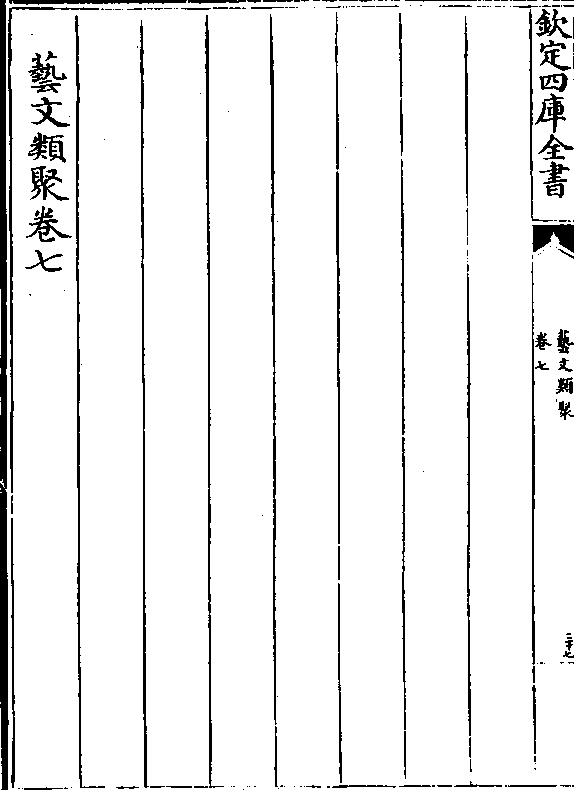 欽定四庫全書
藝文類聚
卷七
二十七
藝文類聚卷七